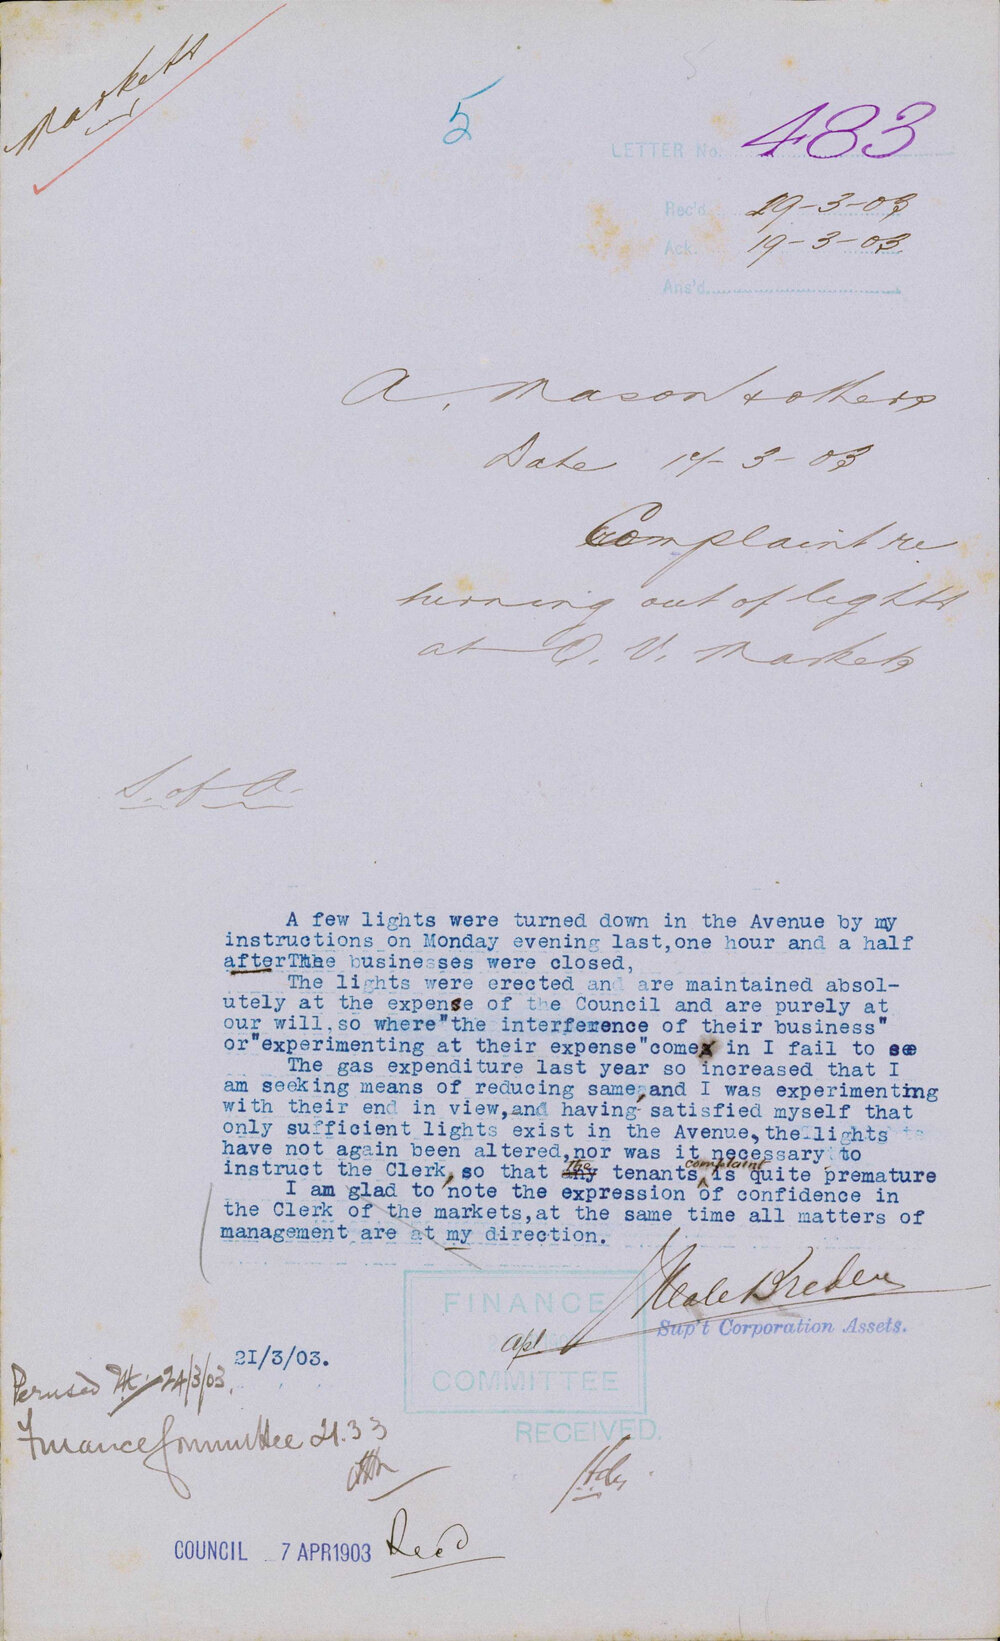 Markets
5
LETTER No. 483
Rec'd 19-3-03
Ack. 19-3-03
Ans'd
A. Mason & others
Date 17-3-03
Complaint re
turning out of lights
at Q. V. Markets
S. of A.
A few lights were turned down in the Avenue by my
instructions on Monday evening last,one hour and a half
after The businesses were closed,
The lights were erected and are maintained absol-
utely at the expense of the Council and are purely at
our will,so where"the interference of their business"
or"experimenting at their expense"come in I fail to see
The gas expenditure last year so increased that I
am seeking means of reducing same,and I was experimenting
with their end in view,and having satisfied myself that
only sufficient lights exist in the Avenue,the lights
have not again been altered,nor was it necessary to
instruct the Clerk, so that the tenants complaint is quite premature
I am glad to note the expression of confidence in
the Clerk of the markets,at the same time all matters of
management are at my direction.
Neale Breden
Sup't Corporation Assets.
FINANCE
COMMITTEE
RECEIVED.
21/3/03.
Perused 24/3/03.
Finance Committee
COUNCIL 7 APR 1903 Recd